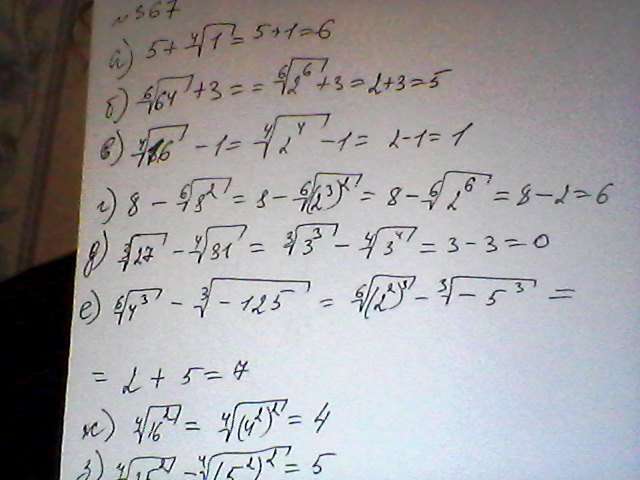 №367
а) 5 + ∜1 = 5 + 1 = 6
б) ⁶√64 + 3 = = ⁶√2⁶ + 3 = 2 + 3 = 5
в) ∜16 − 1 = ∜2⁴ − 1 = 2 − 1 = 1
г) 8 − ⁶√8² = 8 − ⁶√(2³)² = 8 − ⁶√2⁶ = 8 − 2 = 6
д) ∛27 − ∜81 = ∛3³ − ∜3⁴ = 3 − 3 = 0
е) ⁶√4³ − ∛−125 = ⁶√(2²)³ − ∛−5³ =
= 2 + 5 = 7
ж) ∜16² = ∜(4²)² = 4
з) ∜25² = ∜(5²)² = 5